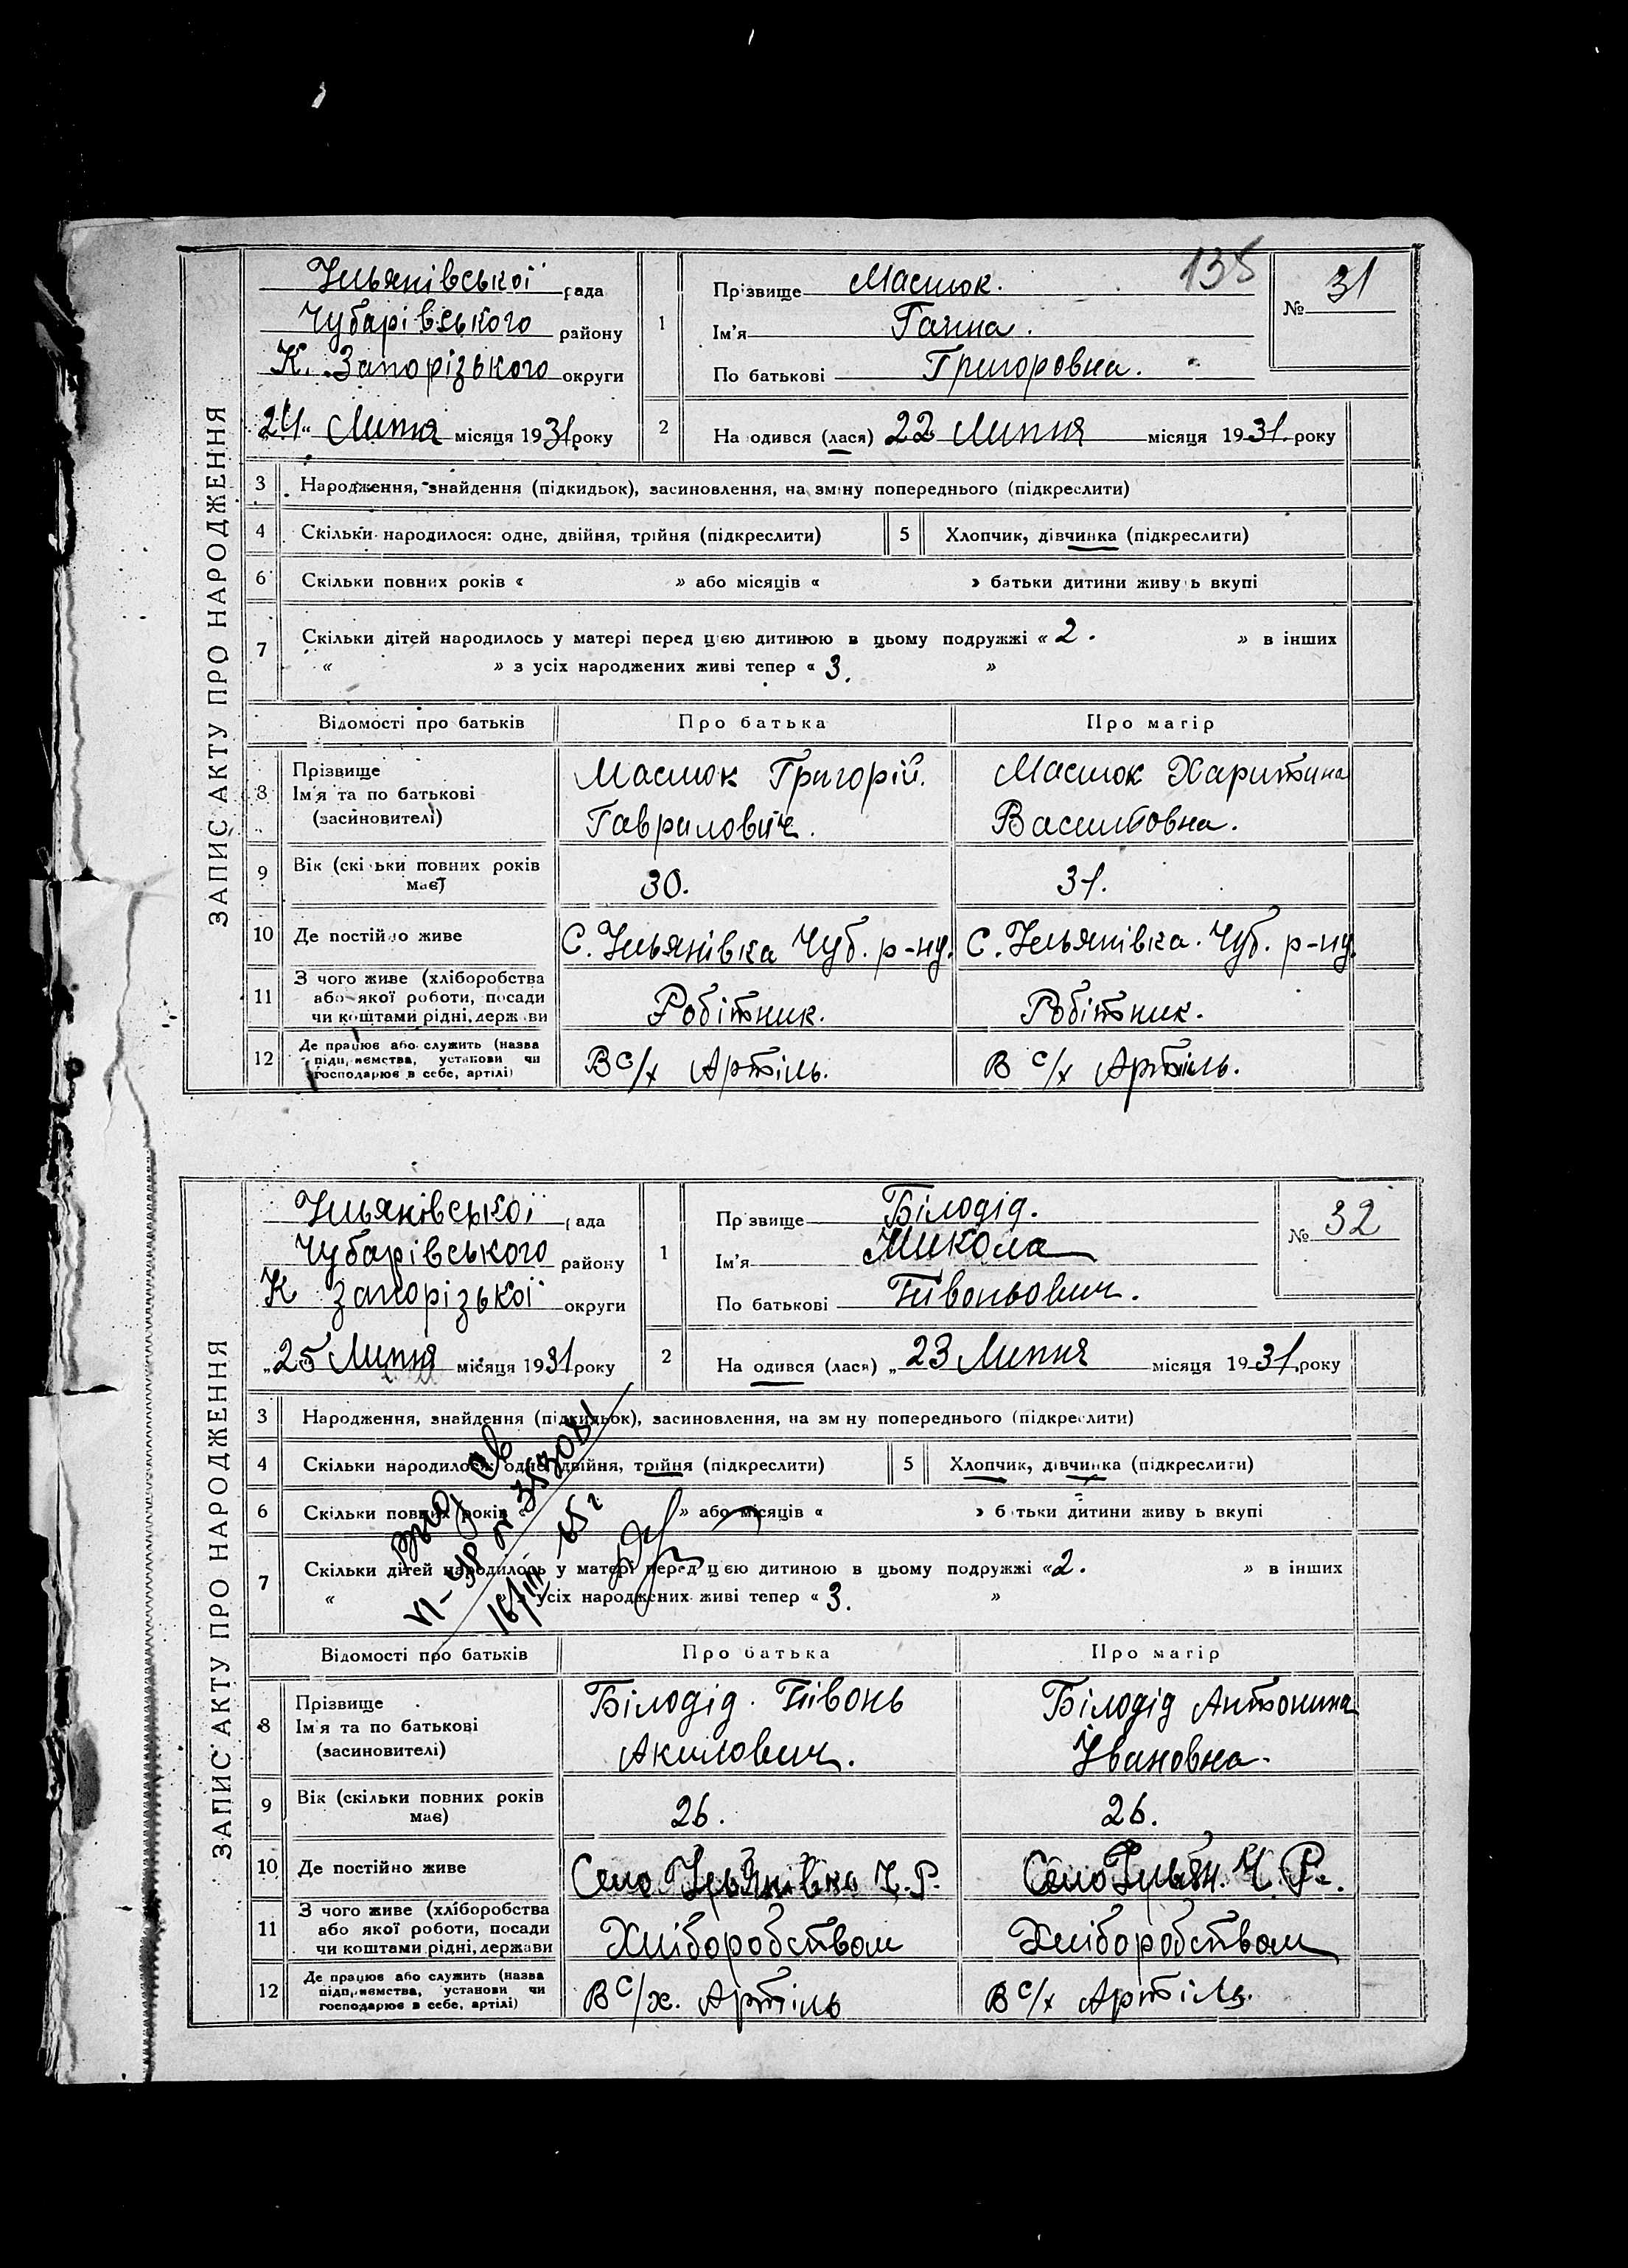 ЗАПИС АКТУ ПРО НАРОДЖЕННЯ
Ільянівської рада
Чубарівського району
К. Запорізького округи
24 Липня місяця 1931 року
1
Прізвище Маслюк.
Ім'я Ганна.
По батькові Григоровна.
135
№ 31
2 На одився (лася) 22 Липня місяця 1931. року
3 Народження, знайдення (підкидьок), засиновлення, на зміну попереднього (підкреслити)
4 Скільки народилося: одне, двійня, трійня (підкреслити) 5 Хлопчик, дівчинка (підкреслити)
6 Скільки повних років « » або місяців « » батьки дитини живу ь вкупі
7 Скільки дітей народилось у матері перед цією дитиною в цьому подружжі « 2. » в інших
« » з усіх народжених живі тепер « 3. »
Відомості про батьків Про батька Про матір
8 Прізвище
Ім'я та по батькові
(засиновителі)
Маслюк Григорій.
Гаврилович.
Маслюк Харитина
Васильовна.
9 Вік (скі ьки повних років
має)
30. 31.
10 Де постійно живе С. Ільянівка Чуб. р-ну. С. Ільянівка. Чуб. р-ну.
11 З чого живе (хліборобства
або якої роботи, посади
чи коштами рідні, держ ви
Робітник. Робітник.
12 Де працює або служить (назва
підприємства, установи чи
господарює в себе, артілі)
В с/х Артіль. В с/х Артіль.
ЗАПИС АКТУ ПРО НАРОДЖЕННЯ
Ільянівської рада
Чубарівського району
К Запорізької округи
„25 Липня місяця 1931 року
1
Пр звище Білодід.
Ім'я Микола
По батькові Півоньович.
№ 32
2 На одився (лася) „23 Липня місяця 1931. року
3 Народження, знайдення (підкидьок), засиновлення, на зм ну попереднього (підкреслити)
4 Скільки народилося: одне, двійня, трійня (підкреслити) 5 Хлопчик, дівчинка (підкреслити)
6 Скільки повних років « » або місяців « » б тьки дитини живу ь вкупі
7 Скільки дітей народилось у матері перед цією дитиною в цьому подружжі « 2. » в інших
« » з усіх народжених живі тепер « 3. »
VI-ЯР № 353081
16/III 65 г
Відомості про батьків Про батька Про матір
8 Прізвище
Ім'я та по батькові
(засиновителі)
Білодід. Півонь
Акилович.
Білодід Антонина
Івановна.
9 Вік (скільки повних років
має)
26. 26.
10 Де постійно живе Село Ільянівка Ч.Р. Село Ільян. Ч.Р.
11 З чого живе (хліборобства
або якої роботи, посади
чи коштами рідні, держави
Хліборобством Хліборобством
12 Де працює або служить (назва
підприємства, установи чи
господарює в себе, артілі)
В с/х. Артіль В с/х Артіль.